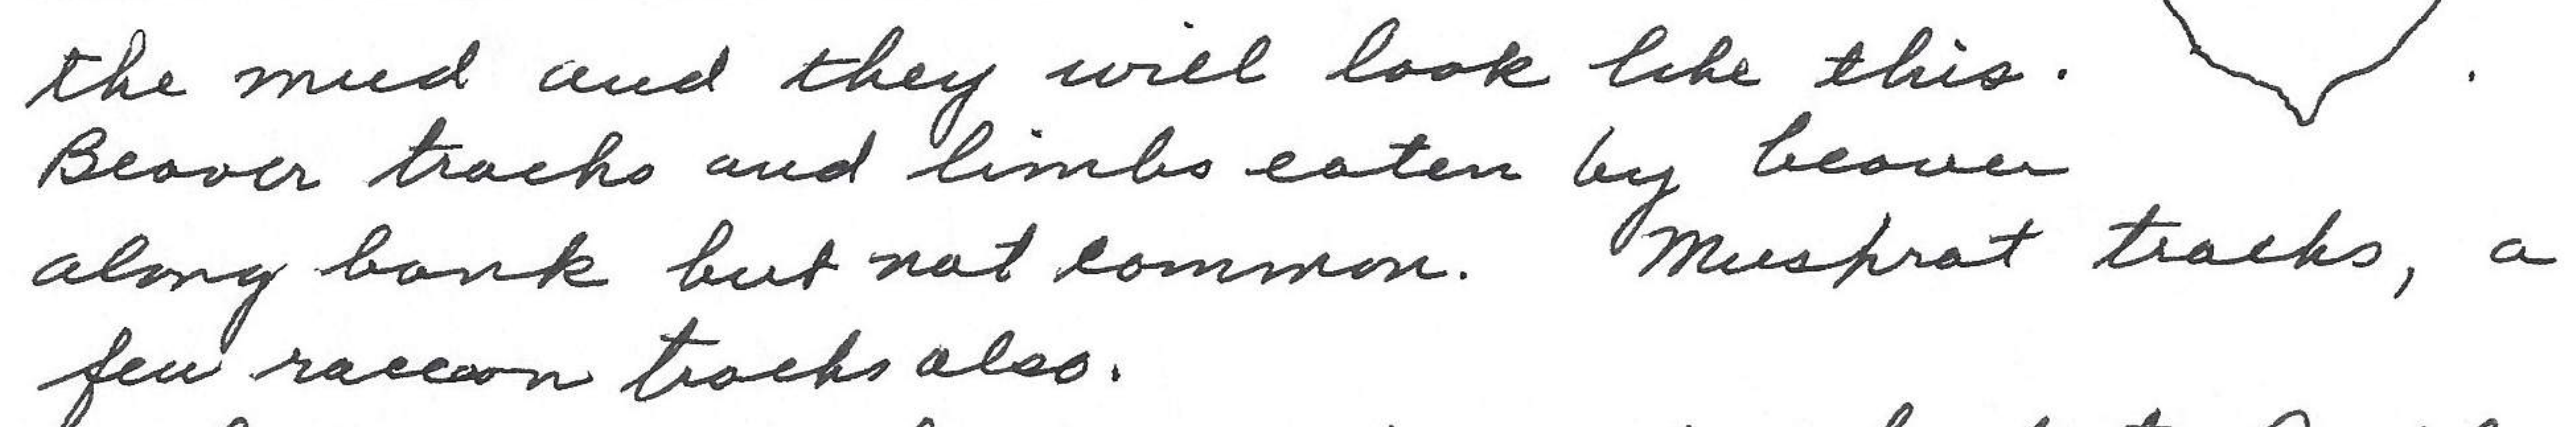 the mud and they will look like this.
Beaver tracks and limbs eaten by beaver
along bank but not common. Muskrat tracks, a
few raccoon tracks also.